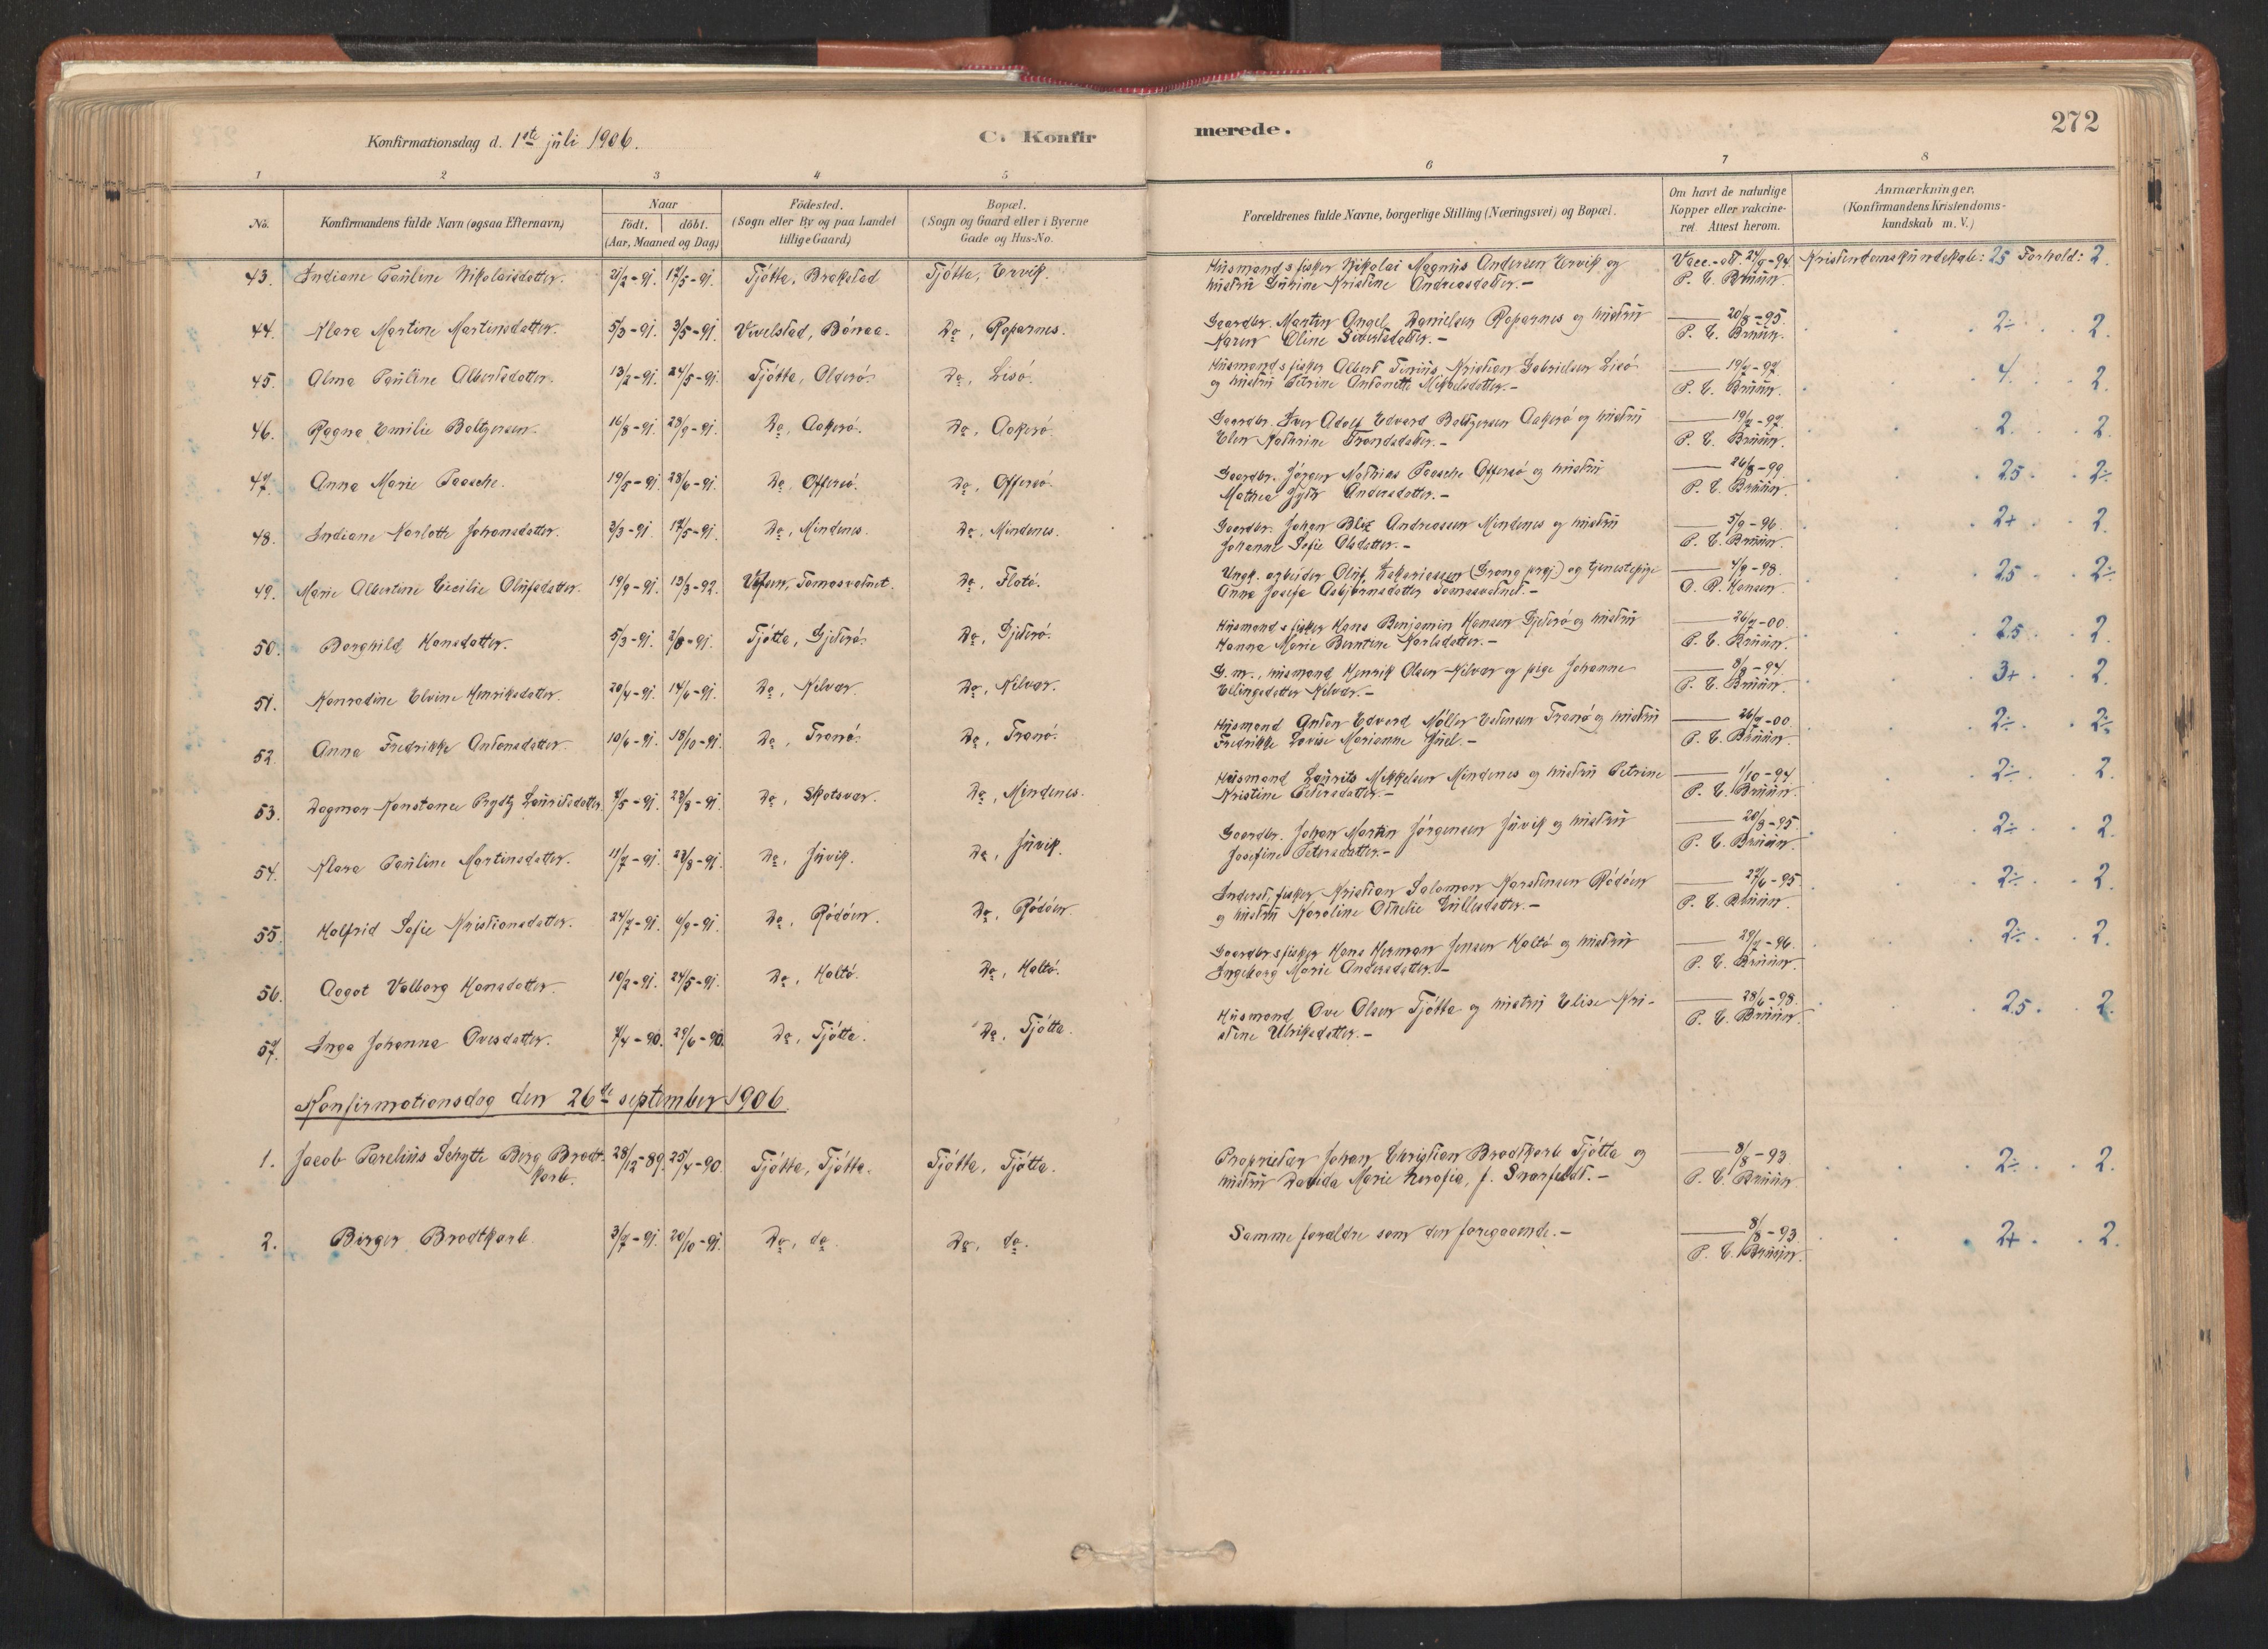 272
Konfirmationsdag d. 1ste juli 1906. C. Konfirmerede.
1 2 3 4 5 6 7 8
No. Konfirmandens fulde Navn (ogsaa Efternavn) Naar födt. döbt. (Aar, Maaned og Dag) Födested. (Sogn eller By og paa Landet tillige Gaard) Bopæl. (Sogn og Gaard eller i Byerne Gade og Hus-No. Forældrenes fulde Navne, borgerlige Stilling (Næringsvei) og Bopæl. Om havt de naturlige Kopper eller vakcineret. Attest herom. Anmærkninger. (Konfirmandens Kristendomskundskab m. V.)
43. Indiane Pauline Nikolaisdatter. 21/2-91. 17/5-91. Tjötta, Brakstad Tjötta, Ervik. Husmand s fisker Nikolai Magnus Andersen Ervik og Vacc. - att. 24/9-94. Kristendomskundskab: 25 Forhold: 2.
hustru Gurine Kristine Andreasdatter.- P. C. Bruun.
44. Klara Martine Martinsdatter. 5/3-91. 3/5-91. Vevelstad, Bönaa. Do, Roparnes. Gaardbr. Martin Angel Danielsen Roparnes og hustru 20/8-95. 2÷ 2.
Karen Oline Sivertsdatter.- P. C. Bruun.
45. Alma Pauline Albertsdatter. 13/2-91. 24/5-91. Tjötta, Olderö. Do, Lisö. Husmand s fisker Albert Tinius Kristian Gabrielsen Lisö 19/7-97. 4. 2.
og hustru Petrine Antonette Mikkelsdatter.- P. C. Bruun.
46. Ragna Emilie Baltzersen. 16/8-91. 23/9-91. Do, Aakerö. Do, Aakerö. Gaardbr. Iver Adolf Edvard Baltzersen Aakerö og hustru 19/7-97. 2. 2.
Elen Kathrine Trondsdatter.- P. C. Bruun.
47. Anna Marie Paasche. 19/5-91. 28/6-91. Do, Offersö. Do, Offersö. Gaardbr. Jörgen Mathias Paasche Offersö og hustru 26/8-99. 25. 2÷
Mathea Andersdatter.- P. C. Bruun.
48. Indiane Karlotte Johansdatter. 3/3-91. 17/5-91. Do, Mindenes. Do, Mindenes. Gaardbr. Johan Blix Andreassen Mindenes og hustru 5/9-96. 2+ 2.
Johanna Sofie Olsdatter.- P. C. Bruun.
49. Marie Albertine Cecilie Olufsdatter. 19/9-91. 13/3-92. Vefsen, Tomasvatnet. Do, Flotö. Ungk. arbeider Oluf Zakariassen (Grong prgj.) og tjenestepige 4/9-98. 25 2÷
Anna Josefa Asbjörnsdatter Tomasvatnet.- O. R. Hansen.
50. Borghild Hansdatter. 5/3-91. 2/8-91. Tjötta, Gjeterö. Do, Gjeterö. Husmand s fisker Hans Benjamin Hansen Gjeterö og hustru 26/7-00. 25 2.
Hanna Marie Berntine Karlsdatter.- P. C. Bruun.
51. Konradine Elvine Henriksdatter. 20/4-91. 14/6-91. Do, Kilvær. Do, Kilvær. G. m., husmand Henrik Olsen Kilvær og pige Johanne 8/9-94. 3+ 2.
Elingsdatter Kilvær.- P. C. Bruun.
52. Anna Fredrikke Antonsdatter. 10/6-91. 18/10-91. Do, Tranö. Do, Tranö. Husmand Anton Edvard Möller Estensen Tranö og hustru 26/7-00. 2÷ 2÷
Fredrikke Lovise Marianne Juel.- P. C. Bruun.
53. Dagmar Konstance Prydtz Lauritsdatter. 7/5-91. 23/8-91. Do, Skotsvær. Do, Mindenes. Husmand Laurits Mikkelsen Mindenes og hustru Petrine 1/10-94. 2÷ 2.
Kristine Petersdatter.- P. C. Bruun.
54. Klara Pauline Martinsdatter. 11/7-91. 23/8-91. Do, Juvik. Do, Juvik. Gaardbr. Johan Martin Jörgensen Juvik og hustru 20/8-95. 2÷ 2.
Josefine Petersdatter.- P. C. Bruun.
55. Halfrid Sofie Kristiansdatter. 24/7-91. 6/9-91. Do, Rödöen. Do, Rödöen. Inderst, fisker Kristian Salomon Karstensen Rödöen 27/6-95. 2÷ 2.
og hustru Karoline Othelie Gullesdatter.- P. C. Bruun.
56. Aagot Valborg Hansdatter. 10/2-91. 24/5-91. Do, Haltö. Do, Haltö. Gaardbr s fisker Hans Herman Jensen Haltö og hustru 29/7-96. 2÷ 2.
Ingeborg Marie Andersdatter.- P. C. Bruun.
57. Inga Johanna Ovesdatter. 7/4-90. 29/6-90. Do, Tjötta. Do, Tjötta. Husmand Ove Olsen Tjötta og hustru Elise Kri- 28/6-98. 25. 2.
stine Ulriksdatter.- P. C. Bruun.
Konfirmationsdag den 26de september 1906.
1. Jacob Parelius Schytte Berg Brodt- 28/12-89. 25/4-90. Tjötta, Tjötta. Tjötta, Tjötta. Proprietær Johan Christian Brodtkorb Tjötta og 8/8-93 2÷ 2.
korb. hustru Davida Marie f. P. C. Bruun.
2. Birger Brodtkorb. 3/7-91. 20/10-91. Do, do. Do, do. Samme forældre som den foregaaende.- 8/8-93. 2+ 2.
P. C. Bruun.